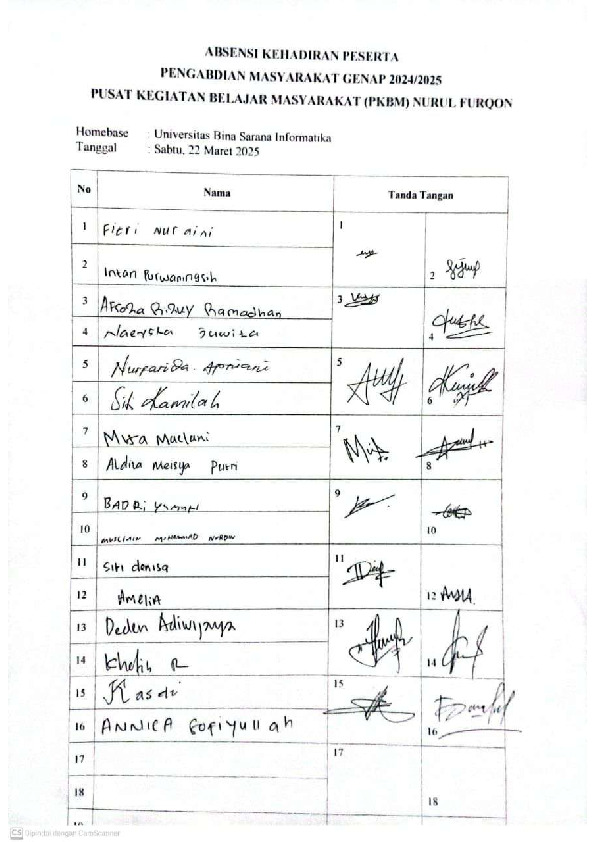 ABSENSI KEHADIRAN PESERTA
PENGABDIAN MASYARAKAT GENAP 2024/2025
PUSAT KEGIATAN BELAJAR MASYARAKAT (PKBM) NURUL FURQON
Homebase : Universitas Bina Sarana Informatika
Tanggal : Sabtu, 22 Maret 2025
No Nama Tanda Tangan
1 Fitri Nur aini 1
2 Intan Purwaningsih 2
3 Rizky Ramadhan 3
4 Juwita 4
5 Nurfarida Apriani 5
6 Siti Kamilah 6
7 Maelani 7
8 Aldita Meisya Putri 8
9 BADRI 9
10 MUHAMMAD 10
11 Siti danisa 11
12 AmeliA 12
13 Deden Adiwijaya 13
14 Kholis R 14
15 Kasdi 15
16 ANNICA Sofiyullah 16
17 17
18 18
CS Dipindai dengan CamScanner